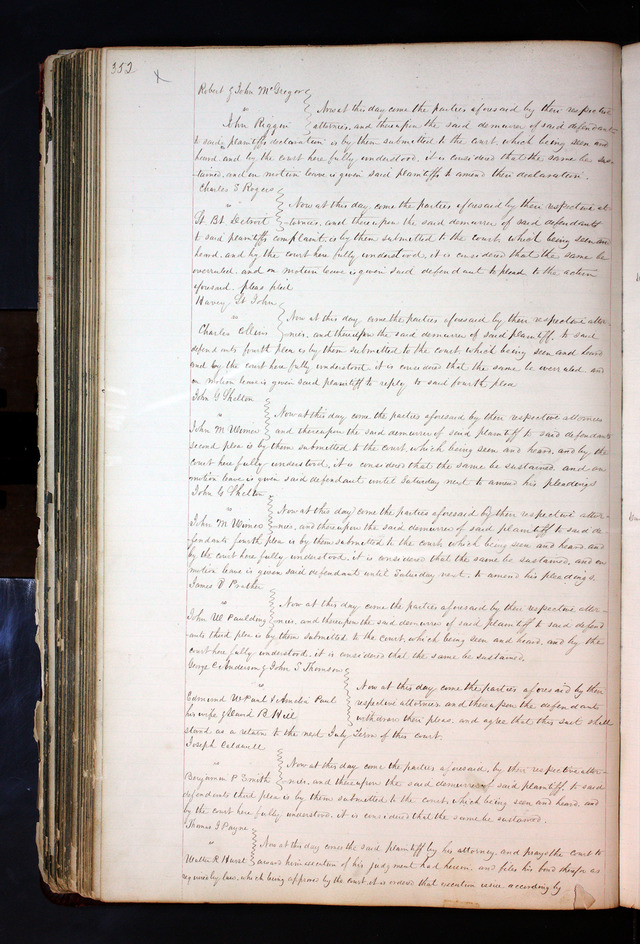 352
Robert & John McGregor
" Now at this day come the parties aforesaid by their respective
John Riggin attornies, and thereupon the said demurrer of said defendant
to said plaintiffs declaration is by them submitted to the court, which being seen and
heard, and by the court here fully understood, it is considered that the same be sus-
tained, and on motion leave is given said plaintiffs to amend their declaration.
Charles S Rogers
" Now at this day come the parties aforesaid by their respective at-
St. Bt Detroit tornies, and thereupon the said demurrer of said defendants
to said plaintiffs complaint is by them submitted to the court which being seen and
heard, and by the court here fully understood, it is considered that the same be
overruled, and on motion leave is given said defendant to plead to the action
aforesaid.
St John
" Now at this day come the parties aforesaid by their respective attor-
Charles nies, and thereupon the said demurrer of said plaintiff, to said
defendants fourth plea is by them submitted to the court which being seen and heard
and by the court here fully understood it is considered that the same be overruled, and
on motion leave is given said plaintiff to reply to said fourth plea
John G Shelton
" Now at this day come the parties aforesaid by their respective attornies
John M Wimer and thereupon the said demurrer of said plaintiff to said defendants
second plea is by them submitted to the court, which being seen and heard, and by the
court here fully understood, it is considered that the same be sustained, and on
motion leave is given said defendant until Saturday next to amend his pleadings
John G Shelton
" Now at this day come the parties aforesaid by their respective attor-
John M Wimer nies, and thereupon the said demurrer of said plaintiff to said de-
fendants fourth plea is by them submitted to the court, which being seen and heard, and
by the court here fully understood, it is considered that the same be sustained, and on
motion leave is given said defendant until Saturday next, to amend his pleadings.
James D
" Now at this day come the parties aforesaid by their respective attor-
John W Paulding nies, and thereupon the said demurrer of said plaintiff to said defend-
ants third plea is by them submitted to the court, which being seen and heard, and by the
court here fully understood, it is considered that the same be sustained.
George C Anderson & John S Thomson
" Now at this day come the parties aforesaid by their
Edmund W Paul & Amelia Paul respective attornies and thereupon the defendants
his wife & David B Hill withdraw their pleas, and agree that this suit shall
stand as a return to the next July Term of this court.
Joseph Caldwell
" Now at this day come the parties aforesaid, by their respective attor-
Benjamin P Smith nies, and thereupon the said demurrer of said plaintiff, to said
defendants third plea is by them submitted to the court, which being seen and heard, and
by the court here fully understood, it is considered that the same be sustained.
Thomas J Payne
" Now at this day comes the said plaintiff by his attorney, and prays the court to
Walter R Hurst award him execution of his judgment had herein, and files his bond therefor as
required by law, which being approved by the court, it is ordered that execution issue accordingly